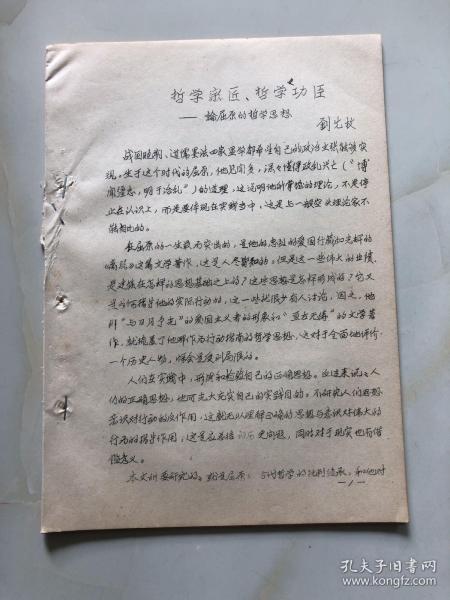 哲学宗匠、哲学功臣
——论屈原的哲学思想
刘先枚
战国晚期，道儒墨法四家显学都希望自己的政治主张能够实
现。生于这个时代的屈原，他见闻多，深々懂得政乱兴亡（“博
闻强志，明于治乱”）的道理，这说明他所掌握的理论，不是停
止在认识上，而是要体现在实践当中，这是与一般空头理论家不
能相比的。
在屈原的一生最为突出的，是他的忠贞的爱国行为和光辉的
《离骚》这篇文学著作，这是人尽皆知的。但是这一些伟大的业绩，
是建筑在怎样的思想基础之上的？这些思想是怎样形成的？它又
是如何指导他的实际行动的，这一些就很少有人讨论，因之，他
那“与日月争光”的爱国主义者的形象和“亘古无俦”的文学著
作，就掩盖了他那作为行动指南的哲学思想，这对于全面地评价
一个历史人物，将会是受到局限的。
人们在实践中，形成和检验自己的正确思想。反过来说：人
们的正确思想，也可充大充实自己的实践目的。不研究人们思想
意识对行动的反作用，这就无从理解正确的思想与意识对伟大的
行为的指导作用，这是应总结的历史问题，同时对于现实也有借
鉴意义。
本文所要研究的，就是屈原：古代哲学的批判继承，和他对
-1-
孔夫子旧书网
www.kongfz.com